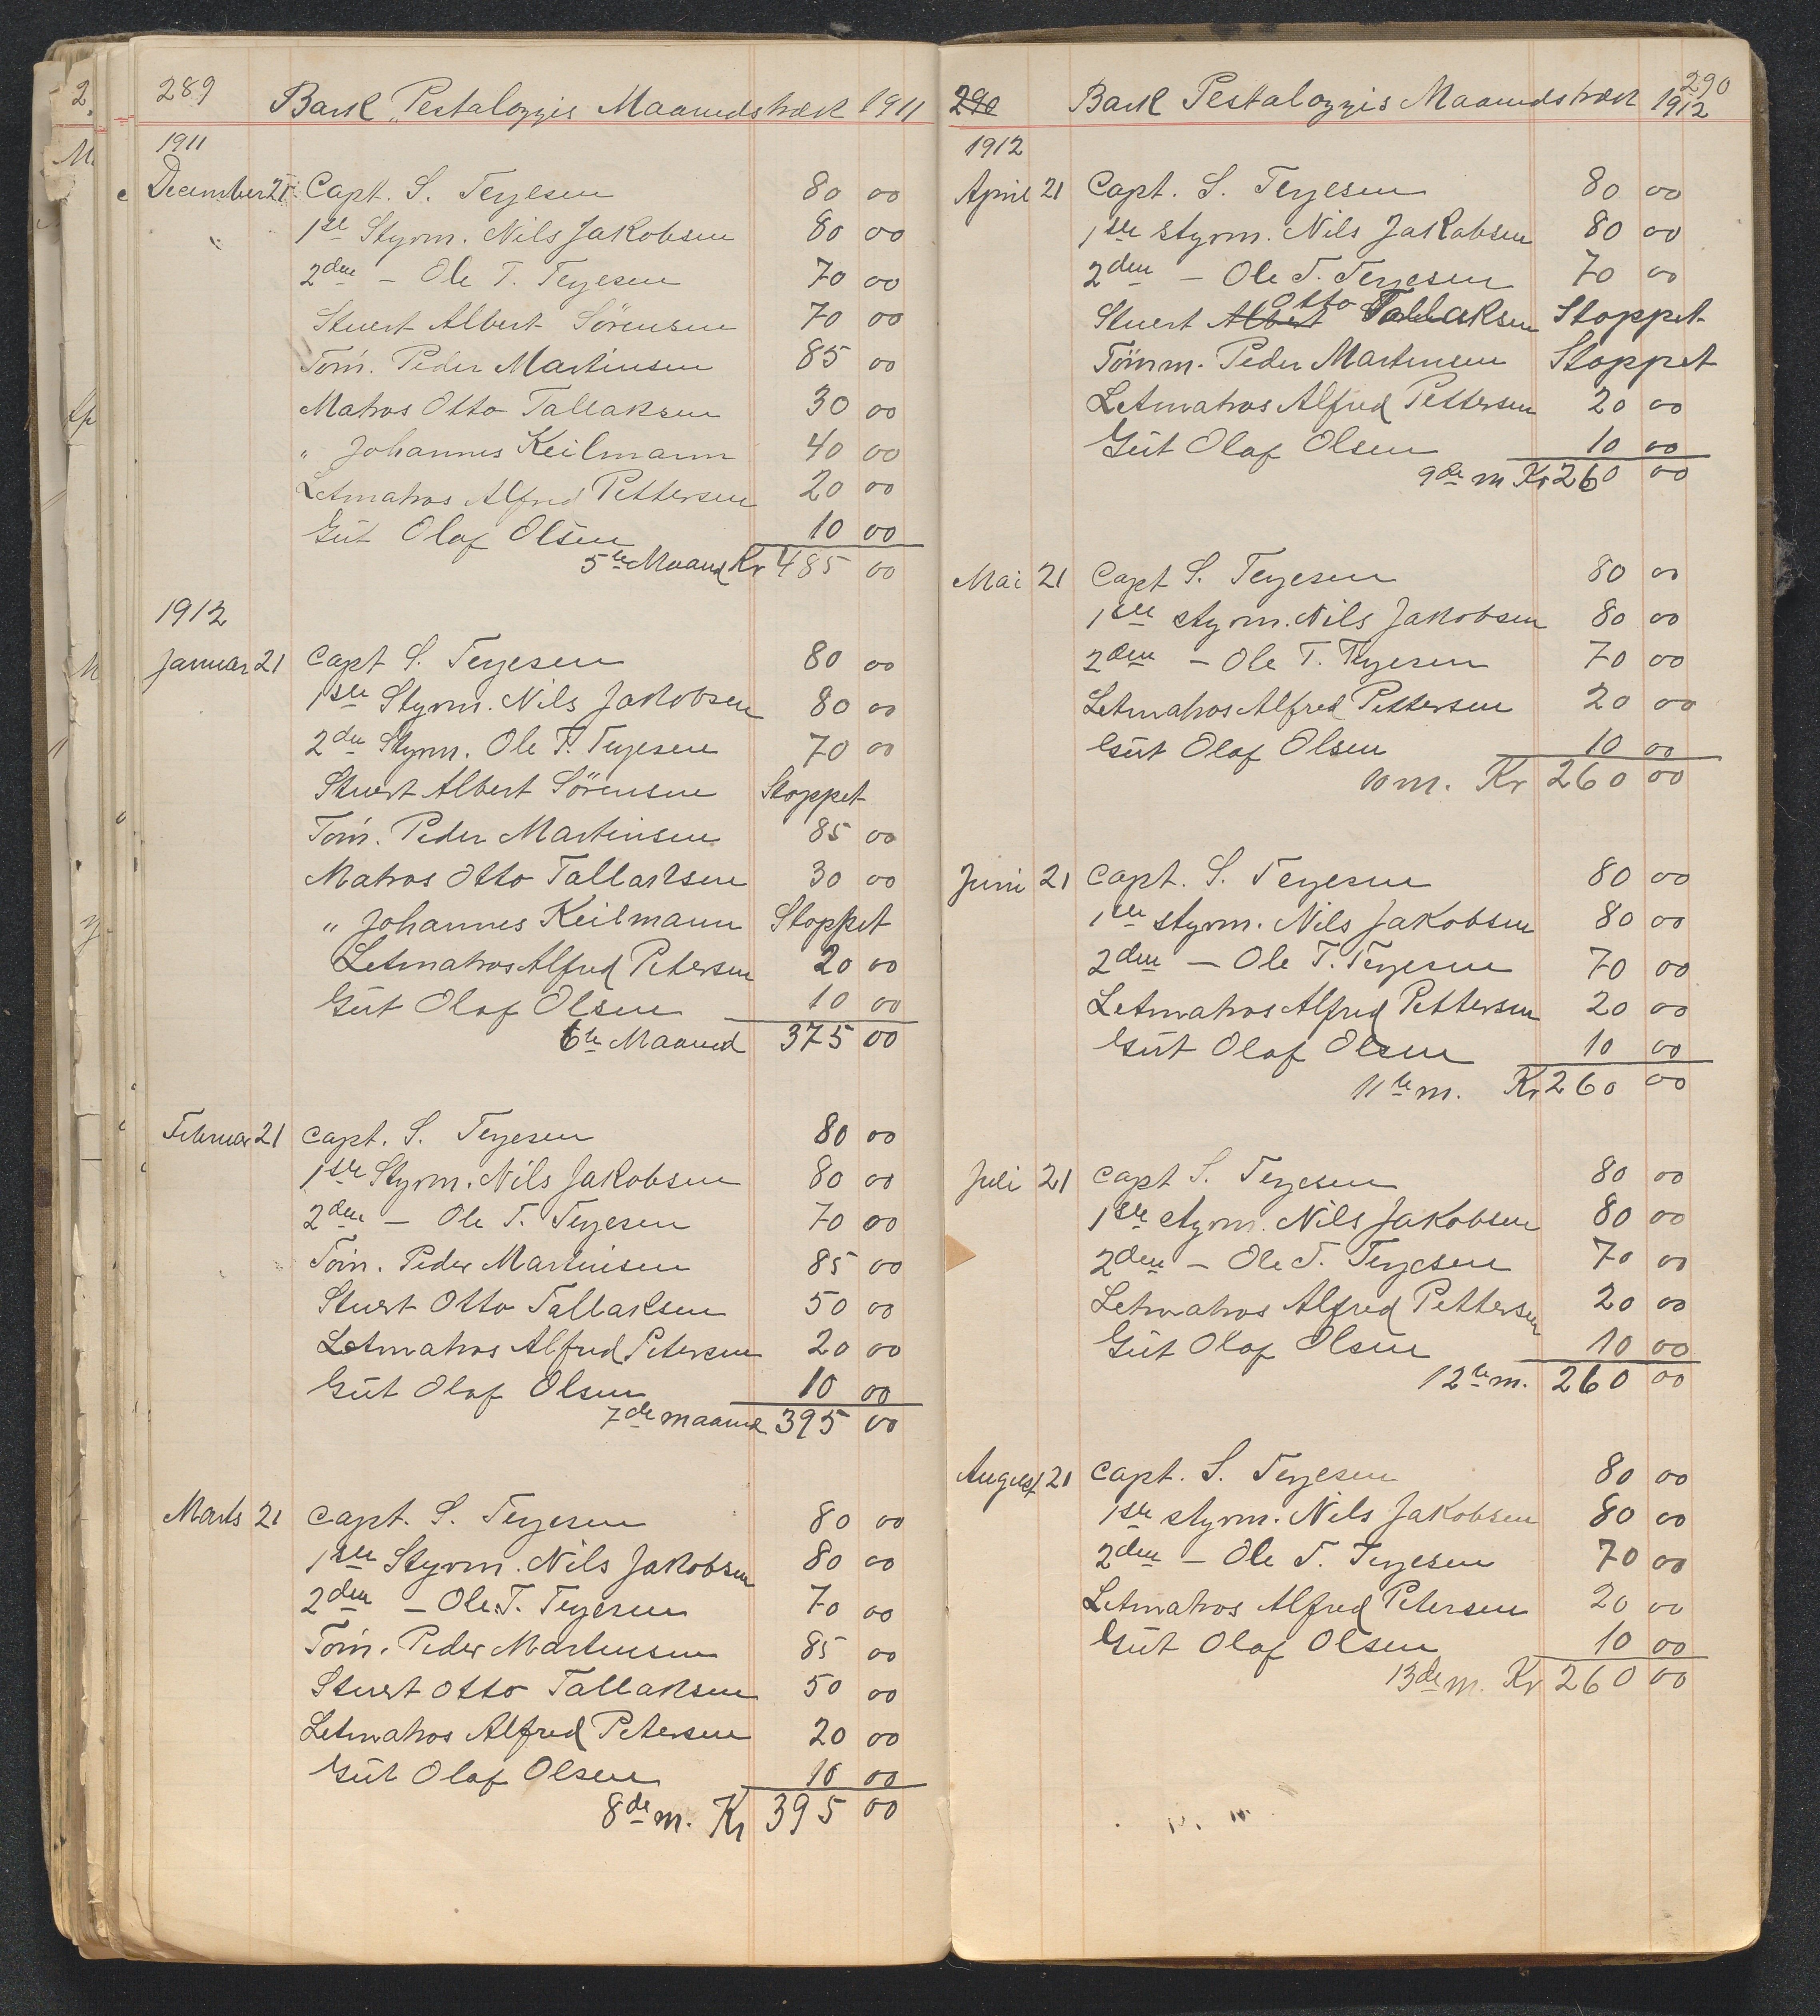 289 Bark „Pestalozzis Maanedstræk 1911
1911
December 21 Capt. S. Terjesen 80 00
1ste Styrm. Nils Jakobsen 80 00
2den - Ole T. Terjesen 70 00
Stuert Albert Sörensen 70 00
Töm. Peder Martinsen 85 00
Matros Otto Tallaksen 30 00
" Johannes Keilmann 40 00
Letmatros Alfred Pettersen 20 00
Gut Olaf Olsen 10 00
5te Maaned Kr 485 00
1912
Januar 21 Capt S. Terjesen 80 00
1ste Styrm. Nils Jakobsen 80 00
2den Styrm. Ole T. Terjesen 70 00
Stuert Albert Sörensen Stoppet
Töm. Peder Martinsen 85 00
Matros Otto Tallaksen 30 00
" Johannes Keilmann Stoppet
Letmatros Alfred Petersen 20 00
Gut Olaf Olsen 10 00
6te Maaned 375 00
Februar 21 Capt. S. Terjesen 80 00
1ste Styrm. Nils Jakobsen 80 00
2den - Ole T. Terjesen 70 00
Töm. Peder Martinsen 85 00
Stuert Otto Tallaksen 50 00
Letmatros Alfred Petersen 20 00
Gut Olaf Olsen 10 00
7de maaned 395 00
Marts 21 Capt. S. Terjesen 80 00
1ste Styrm. Nils Jakobsen 80 00
2den - Ole T. Terjesen 70 00
Töm. Peder Martinsen 85 00
Stuert Otto Tallaksen 50 00
Letmatros Alfred Petersen 20 00
Gut Olaf Olsen 10 00
8de m. Kr 395 00
290 Bark Pestalozzis Maanedstræk 1912 290
1912
April 21 Capt. S. Terjesen 80 00
1ste Styrm. Nils Jakobsen 80 00
2den - Ole T. Terjesen 70 00
Stuert Albert Otto Tallaksen Stoppet
Tömm. Peder Martinsen Stoppet
Letmatros Alfred Pettersen 20 00
Gut Olaf Olsen 10 00
9de m Kr 260 00
Mai 21 Capt S. Terjesen 80 00
1ste styrm. Nils Jakobsen 80 00
2den - Ole T. Terjesen 70 00
Letmatros Alfred Pettersen 20 00
Gut Olaf Olsen 10 00
10 m. Kr 260 00
Juni 21 Capt. S. Terjesen 80 00
1ste styrm. Nils Jakobsen 80 00
2den - Ole T. Terjesen 70 00
Letmatros Alfred Pettersen 20 00
Gut Olaf Olsen 10 00
11te m. Kr 260 00
Juli 21 Capt S. Terjesen 80 00
1ste styrm. Nils Jakobsen 80 00
2den - Ole T. Terjesen 70 00
Letmatros Alfred Pettersen 20 00
Gut Olaf Olsen 10 00
12te m. 260 00
August 21 Capt. S. Terjesen 80 00
1ste styrm. Nils Jakobsen 80 00
2den - Ole T. Terjesen 70 00
Letmatros Alfred Petersen 20 00
Gut Olaf Olsen 10 00
13de m. Kr 260 00